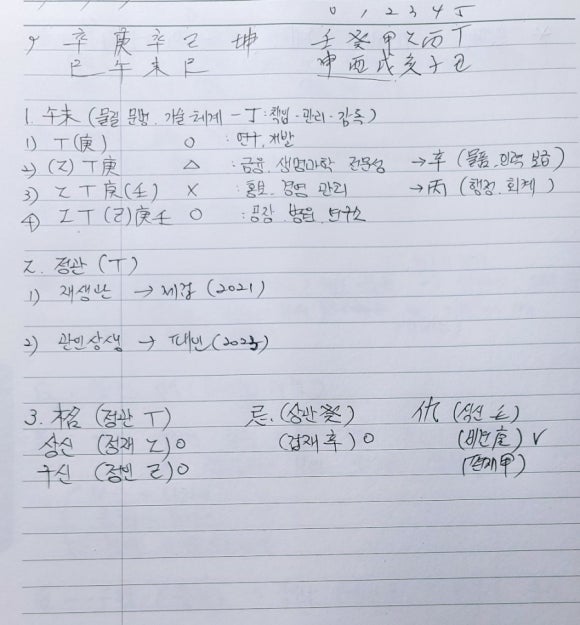 0 1 2 3 4 5
辛 庚 辛 乙 坤 壬 癸 甲 乙 丙 丁
巳 午 未 巳 申 酉 戌 亥 子 丑
1. 午未 (물질 문명. 기술 체계 - 丁: 책임 · 관리 · 감독)
1) 丁(庚) O : 연구, 개발
2) (乙) 丁庚 △ : 금융. 생명과학 전문성 → 辛 (물품. 인력 보급)
3) 乙丁庚(壬) X : 홍보. 경영 관리 → 丙 (행정. 회계)
4) 乙丁(己)庚壬 O : 공장 병원 연구소
2. 정관 (丁)
1) 재생관 → 제검 (2021)
2) 관인상생 → (2023)
3. 格 (정관 丁) 忌. (상관 癸) 仇 (식신 壬)
상신 (정재 乙) O (겁재 辛) O (비견 庚) V
구신 (정인 己) O (편재 甲)